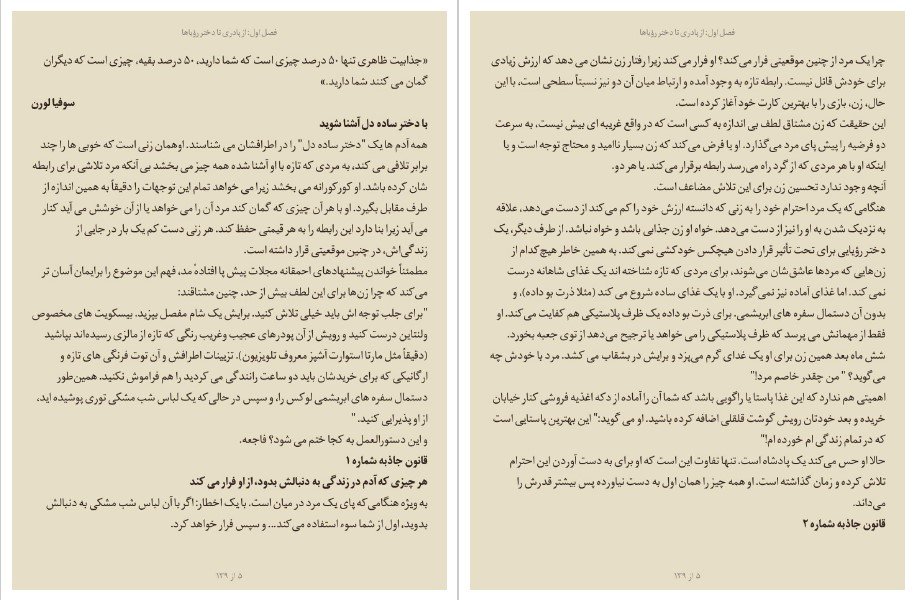 فصل اول: از پادری تا دختر رؤیاها
«جذابیت ظاهری تنها ۵۰ درصد چیزی است که شما دارید، ۵۰ درصد بقیه، چیزی است که دیگران
گمان می کنند شما دارید.»
سوفیا لورن
با دختر ساده دل آشنا شوید
همه آدم ها یک "دختر ساده دل" را در اطرافشان می شناسند. اوهمان زنی است که خوبی ها را چند
برابر تلافی می کند، به مردی که تازه با او آشنا شده همه چیز می بخشد بی آنکه مرد تلاشی برای رابطه
شان کرده باشد. او کورکورانه می بخشد زیرا می خواهد تمام این توجهات را دقیقاً به همین اندازه از
طرف مقابل بگیرد. او با هر آن چیزی که گمان کند مرد آن را می خواهد یا از آن خوشش می آید کنار
می آید زیرا بنا دارد این رابطه را به هر قیمتی حفظ کند. هر زنی دست کم یک بار در جایی از
زندگی‌اش، در چنین موقعیتی قرار داشته است.
مطمئناً خواندن پیشنهادهای احمقانه مجلات پیش پا افتادهٔ مد، فهم این موضوع را برایمان آسان تر
می‌کند که چرا زن‌ها برای این لطف بیش از حد، چنین مشتاقند:
"برای جلب توجه اش باید خیلی تلاش کنید. برایش یک شام مفصل بپزید. بیسکویت های مخصوص
ولنتاین درست کنید و رویش از آن پودرهای عجیب وغریب رنگی که تازه از مالزی رسیده‌اند بپاشید
(دقیقاً مثل مارتا استوارت آشپز معروف تلویزیون). تزیینات اطرافش و آن توت فرنگی های تازه و
ارگانیکی که برای خریدشان باید دو ساعت رانندگی می کردید را هم فراموش نکنید. همین‌طور
دستمال سفره های ابریشمی لوکس را، و سپس در حالی‌که یک لباس شب مشکی توری پوشیده اید،
از او پذیرایی کنید."
و این دستورالعمل به کجا ختم می شود؟ فاجعه.
قانون جاذبه شماره ۱
هر چیزی که آدم در زندگی به دنبالش بدود، از او فرار می کند
به ویژه هنگامی‌که پای یک مرد در میان است. با یک اخطار: اگر با آن لباس شب مشکی به دنبالش
بدوید، اول از شما سوء استفاده می‌کند... و سپس فرار خواهد کرد.
۵ از ۱۳۹
فصل اول: از پادری تا دختر رؤیاها
چرا یک مرد از چنین موقعیتی فرار می‌کند؟ او فرار می‌کند زیرا رفتار زن نشان می دهد که ارزش زیادی
برای خودش قائل نیست. رابطه تازه به وجود آمده و ارتباط میان آن دو نیز نسبتاً سطحی است، با این
حال، زن، بازی را با بهترین کارت خود آغاز کرده است.
این حقیقت که زن مشتاق لطف بی اندازه به کسی است که در واقع غریبه ای بیش نیست، به سرعت
دو فرضیه را پیش پای مرد می‌گذارد. او یا فرض می‌کند که زن بسیار ناامید و محتاج توجه است و یا
اینکه او با هر مردی که از گرد راه می‌رسد رابطه برقرار می‌کند. یا هر دو.
آنچه وجود ندارد تحسین زن برای این تلاش مضاعف است.
هنگامی‌که یک مرد احترام خود را به زنی که دانسته ارزش خود را کم می‌کند از دست می‌دهد، علاقه
به نزدیک شدن به او را نیز از دست می‌دهد. خواه او زن جذابی باشد و خواه نباشد. از طرف دیگر، یک
دختر رؤیایی برای تحت تأثیر قرار دادن هیچکس خودکشی نمی‌کند. به همین خاطر هیچ‌کدام از
زن‌هایی که مردها عاشق‌شان می‌شوند، برای مردی که تازه شناخته اند یک غذای شاهانه درست
نمی کند. اما غذای آماده نیز نمی گیرد. او با یک غذای ساده شروع می کند (مثلا ذرت بو داده)، و
بدون آن دستمال سفره های ابریشمی. برای ذرت بو داده یک ظرف پلاستیکی هم کفایت می‌کند. او
فقط از مهمانش می پرسد که ظرف پلاستیکی را می خواهد یا ترجیح می‌دهد از توی جعبه بخورد.
شش ماه بعد همین زن برای او یک غدای گرم می‌پزد و برایش در بشقاب می کشد. مرد با خودش چه
می‌گوید؟ " من چقدر خاصم مرد!"
اهمیتی هم ندارد که این غذا پاستا یا راگویی باشد که شما آن را آماده از دکه اغذیه فروشی کنار خیابان
خریده و بعد خودتان رویش گوشت قلقلی اضافه کرده باشید. او می گوید:" این بهترین پاستایی است
که در تمام زندگی ام خورده ام!"
حالا او حس می‌کند یک پادشاه است. تنها تفاوت این است که او برای به دست آوردن این احترام
تلاش کرده و زمان گذاشته است. او همه چیز را همان اول به دست نیاورده پس بیشتر قدرش را
می‌داند.
قانون جاذبه شماره ۲
۵ از ۱۳۹